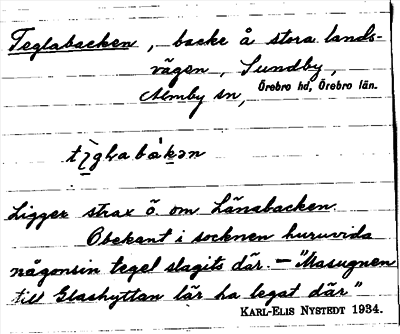 Teglabacken, backe å stora lands-
vägen, Sundby,
Almby sn, Örebro hd, Örebro län.
Ligger strax ö. om Länsbacken.
Obekant i socknen huruvida
någonsin tegel slagits där. – "Masugnen
till Glashyttan lär ha legat där"
KARL-ELIS NYSTEDT 1934.